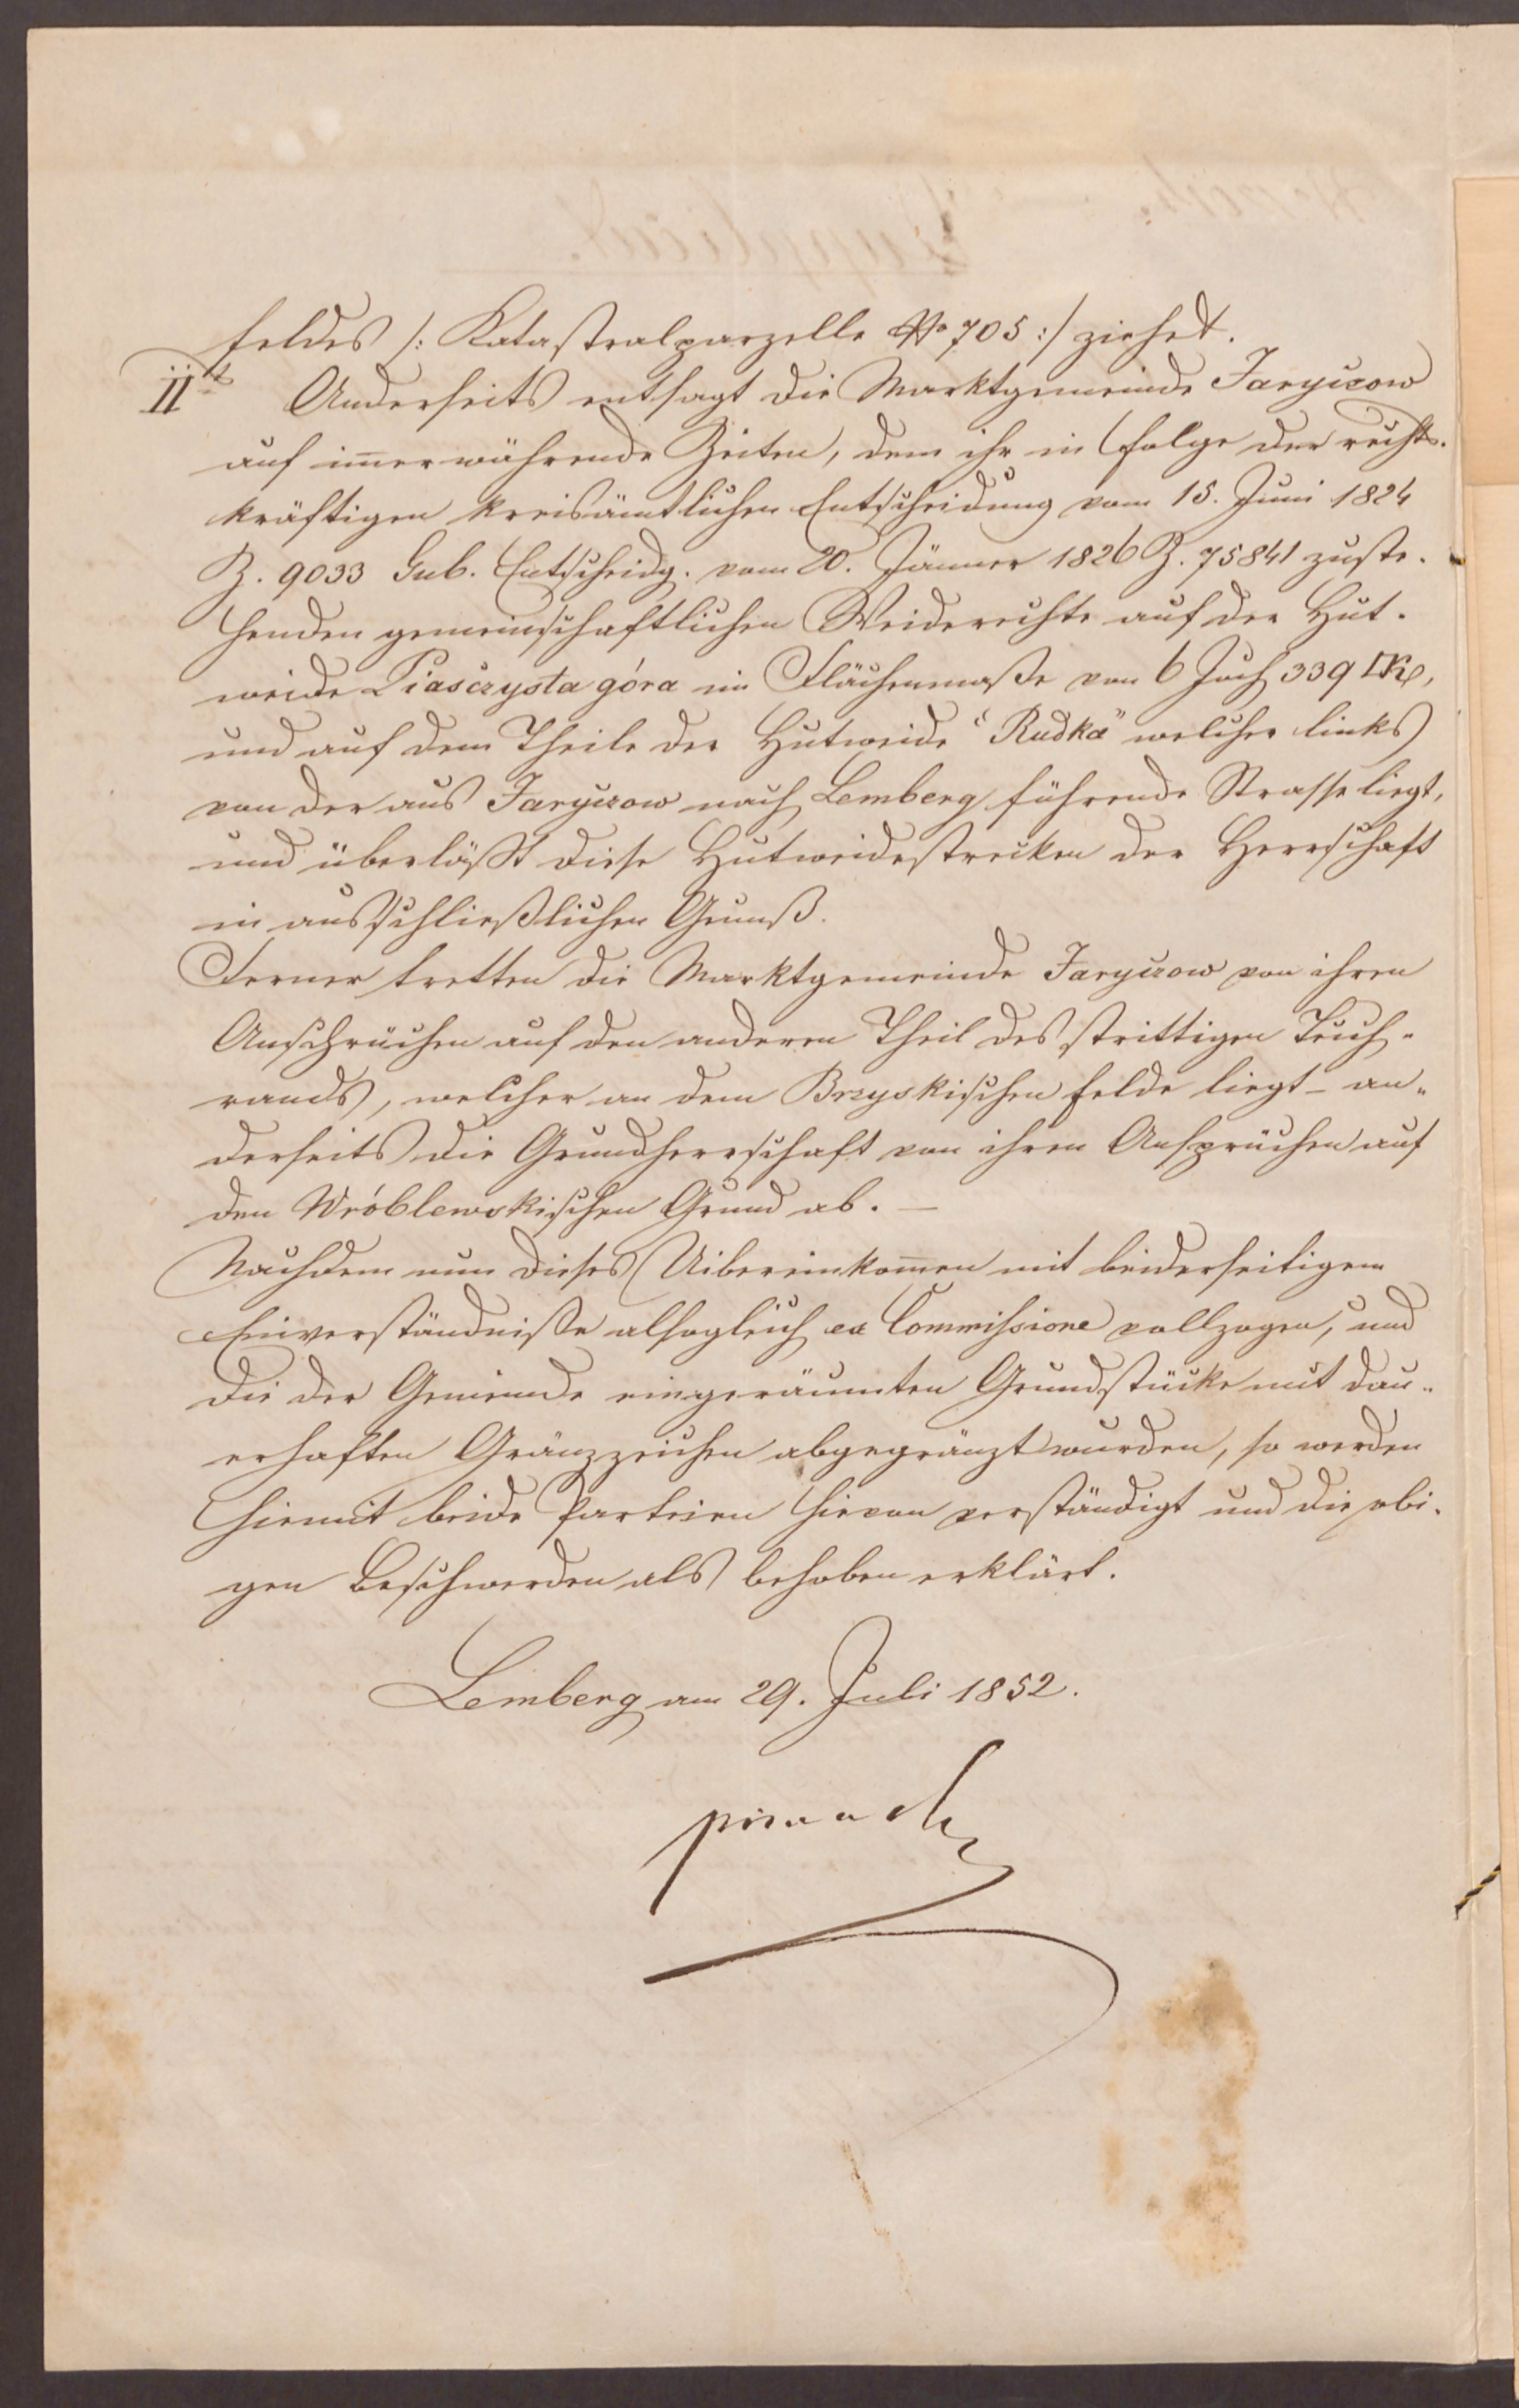 feldes /: Katastralparzelle No 705 :/ ziehet.
IItens Anderseits entsagt die Marktgemeinde Jaryczow
auf imerwährende Zeiten, dem ihr in Folge der rechts-
kräftigen kreisämtlichen Entscheidung vom 15. Juni 1824
Z. 9033 Gub. Entscheidg. vom 20. Jänner 1826 Z. 75841 zuste-
henden gemeinschaftlichen Weiderechte auf der Hut-
weide Piasczysta góra im Flächenmaße von 6 Joch 339 □Kl,
und auf dem Theile der Hutweide "Rudka" welcher links
von der aus Jaryczow nach Lemberg führende Strasse liegt,
und überläßt diese Hutweidestrecken der Herrschaft
in ausschließlichen Genuß.
Ferner tretten die Marktgemeinde Jaryczow von ihren
Ansprüchen auf den anderen Theil des strittigen Teich-
rands, welcher an dem Brzyskischen Felde liegt – an-
derseits die Grundherrschaft von ihren Ansprüchen auf
den Wróblewskischen Grund ab. —
Nachdem nun dieses Uibereinkomen mit beiderseitigem
Einverständniße alsogleich ex Commissione vollzogen, und
die der Gemeinde eingeräumten Grundstücke mit dau-
erhaften Gränzzeichen abgegränzt wurden, so werden
hiemit beide Parteien hievon verständigt und die obi-
gen Beschwerden als behoben erklärt.
Lemberg am 29. Juli 1852.